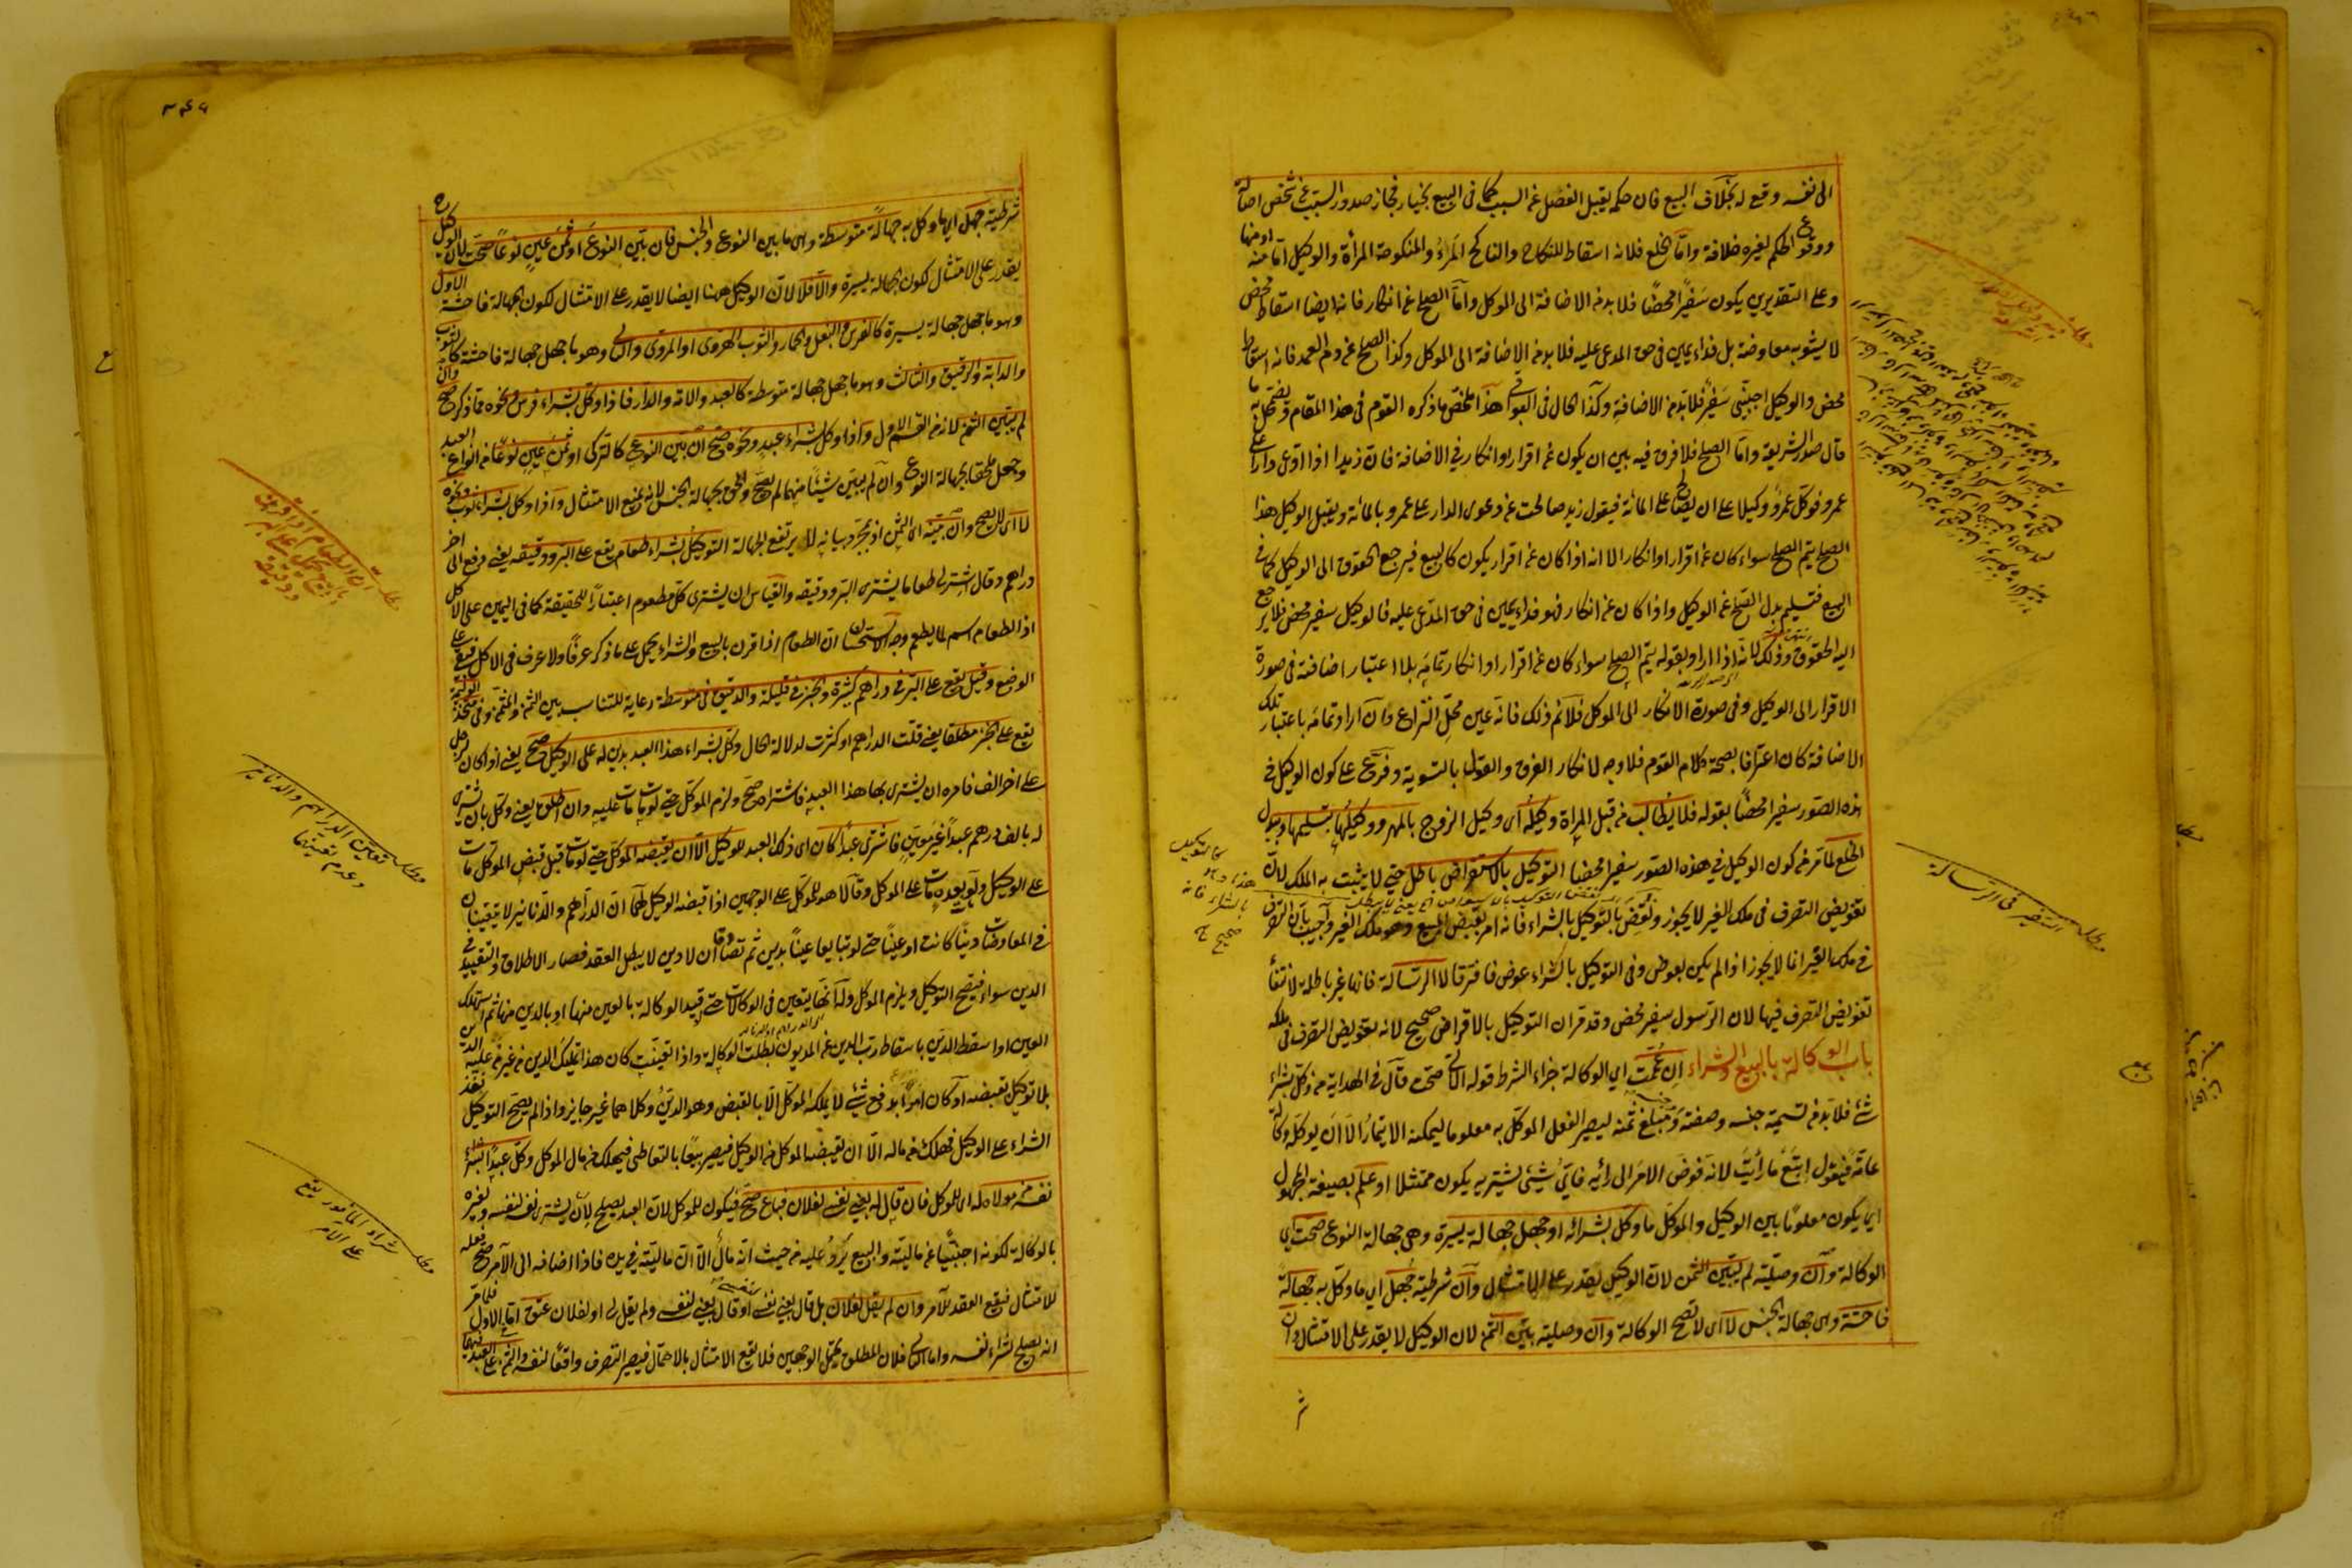 الى نفسه وقع له بخلاف البيع فان حكمه يقبل الفصل عن السبب كما فى البيع بخيار فجاز صدور السبب عن شخص اصالة
ووقوع الحكم لغيره خلافة واما الخلع فلانه اسقاط للنكاح والناكح المرء والمنكوحة المرأة والوكيل اما منه او منها
وعلى التقديرين يكون سفيرا محضا فلا بد من الاضافة الى الموكل واما الصلح عن انكار فانه ايضا اسقاط محض
لا يشوبه معاوضة بل فداء يمين فى حق المدعى عليه فلا بد من الاضافة الى الموكل وكذا الصلح عن دم العمد فانه اسقاط
محض والوكيل اجنبى سفير فلا بد من الاضافة وكذا الحال فى البواقى هذا ملخص ما ذكره القوم فى هذا المقام
قال صدر الشريعة واما الصلح فلا فرق فيه بين ان يكون عن اقرار او انكار فى الاضافة فان زيدا اذا ادعى دارا على
عمرو فوكل عمرو وكيلا على ان يصالح على المائة فيقول زيد صالحت عن دعوى الدار على عمرو بالمائة ويقبل الوكيل هذا
الصلح يتم الصلح سواء كان عن اقرار او انكار الا انه اذا كان عن اقرار يكون كالبيع فيرجع الحقوق الى الوكيل كما فى
البيع فتسليم بدل الصلح على الوكيل واذا كان عن انكار فهو فداء يمين فى حق المدعى عليه فالوكيل سفير محض فلا يرجع
اليه الحقوق وذلك لانه اذا اراد بقوله يتم الصلح سواء كان عن اقرار او انكار تمامه بلا اعتبار اضافته فى صورة
الاقرار الى الوكيل وفى صورة الانكار الى الموكل فلا نم ذلك فانه عين محل النزاع وان اراد تمامه باعتبار تلك
الاضافة كان اعترافا بصحة كلام القوم فلا وجه لانكار الفرق والقول بالتسوية وفرع على كون الوكيل فى
هذه الصور سفيرا محضا بقوله فلا يطالب من قبل المرأة وكيله اى وكيل الزوج بالمهر ووكيلها بتسليمها وببدل
الخلع لما مر من كون الوكيل فى هذه الصور سفيرا محضا التوكيل بالاستقراض باطل حتى لا يثبت به الملك لان
تفويض التصرف فى ملك الغير لا يجوز ونقض بالتوكيل بالشراء فانه امر بقبض المبيع وهو ملك الغير واجيب بان التصرف
فى ملك الغير انما لا يجوز اذا لم يكن بعوض وفى التوكيل بالشراء عوض فافترقا لا الرسالة فانها غير باطلة لانتفاء
تفويض التصرف فيها لان الرسول سفير محض وقد مر ان التوكيل بالاقراض صحيح لانه تفويض التصرف فى ملكه
باب الوكالة بالبيع والشراء ان عمت اى الوكالة جزاء الشرط قوله الآتى صحت قال فى الهداية من وكل بشراء
شئ فلا بد من تسمية جنسه وصفته ومبلغ ثمنه ليصير الفعل الموكل به معلوما ليمكنه الايتمار الا ان يوكله وكالة
عامة فيقول ابتع ما رأيت لانه فوض الامر الى رأيه فاى شئ يشتريه يكون ممتثلا او علم بصيغة المجهول
اى يكون معلوما بين الوكيل والموكل ما وكل بشرائه او جهل جهالة يسيرة وهى جهالة النوع صحت اى
الوكالة وان وصلية لم يبين الثمن لان الوكيل يقدر على الامتثال وان شرطية جهل اى ما وكل به جهالة
فاحشة وهى جهالة الجنس لا اى لا تصح الوكالة وان وصلية بين الثمن لان الوكيل لا يقدر على الامتثال وان
مطلب السفير فى الرسالة
شرطية جهل اى ما وكل به جهالة متوسطة وهى ما بين النوع والجنس فان بين النوع او ثمن عين نوعا صحت لان الوكيل
يقدر على الامتثال لكون الجهالة يسيرة والا فلا لان الوكيل ههنا ايضا لا يقدر على الامتثال لكون الجهالة فاحشة الاول
وهو ما جهل جهالة يسيرة كالفرس والبغل والحمار والثوب الهروى او المروى والثانى وهو ما جهل جهالة فاحشة كالثوب
والدابة والرقيق والثالث وهو ما جهل جهالة متوسطة كالعبد والامة والدار فاذا وكل بشراء فرس ونحوه مما ذكر صح وان
لم يبين الثمن لانه من القسم الاول واذا وكل بشراء عبد ونحوه صح ان بين النوع كالتركى او ثمن عين نوعا من انواع العبد
وجعل ملحقا بجهالة النوع وان لم يبين شيئا منهما لم يصح والحق بجهالة الجنس لانه يمنع الامتثال واذا وكل بشراء ثوب ونحوه
لا اى لا يصح وان بينه اى الثمن اذ بمجرد بيانه لا يرتفع الجهالة التوكيل بشراء طعام يقع على البر ودقيقه يعنى دفع الى اخر
دراهم وقال اشتر لى طعاما يشترى البر ودقيقه والقياس ان يشترى كل مطعوم اعتبارا للحقيقة كما فى اليمين على الاكل
اذ الطعام اسم لما يطعم وجه الاستحسان ان الطعام اذا قرن بالبيع والشراء يحمل على ما ذكر عرفا ولا عرف فى الاكل فبقى على
الوضع وقيل يقع على البر فى دراهم كثيرة والخبز فى قليلة والدقيق فى متوسطة رعاية للتناسب بين الثمن والمثمن وفى متخذ الوليمة
يقع على الخبز مطلقا يعنى قلت الدراهم او كثرت لدلالة الحال وكل بشراء هذا العبد بدين له على الوكيل صح يعنى اذا كان لرجل
على اخر الف فامره ان يشترى بها هذا العبد فاشتراه صح ولزم الموكل حتى لو مات مات عليه وان اطلق يعنى وكل بان يشترى
له بالف درهم عبدا غير معين فاشترى عبدا كان اى ذلك العبد للوكيل الا ان يقبضه الموكل حتى لو مات قبل قبض الموكل مات
على الوكيل ولو بعده مات على الموكل وقالا هو للموكل على الوجهين اذا قبضه الوكيل لهما ان الدراهم والدنانير لا يتعينان
فى المعاوضات دينا كانت او عينا حتى لو تبايعا عينا بدين ثم تصادقا ان لا دين لا يبطل العقد فصار الاطلاق والتقييد فى
الدين سواء فيصح التوكيل ويلزم الموكل وله انها يتعين فى الوكالات حتى لو قيد الوكالة بالعين منها او بالدين منها ثم استهلك
العين او اسقط الدين باسقاط رب الدين عن المديون بطلت الوكالة واذا تعينت كان هذا تمليك الدين من غير من عليه الدين
بلا توكيل بقبضه او كان امرا بدفع شئ لا يملكه الموكل الا بالقبض وهو الدين وكلاهما غير جايز واذا لم يصح التوكيل نفذ
الشراء على الوكيل فهلك من ماله الا ان يقبضه الموكل من الوكيل فيصير بيعا بالتعاطى فيهلك من مال الموكل وكل عبدا بشراء
نفسه من مولاه له اى للموكل فان قال له بعنى نفسى لفلان فباع صح فيكون للموكل لان العبد يصلح لان يشترى نفسه لنفسه ولغيره
بالوكالة لكونه اجنبيا عن ماليته والبيع يرد عليه من حيث انه مال الا ان ماليته فى يده فاذا اضافه الى الآمر صح فعله
للامتثال فيقع العقد للآمر وان لم يقل لفلان بل قال بعنى نفسى او قال بعنى لنفسى ولم يقل لى او لفلان عتق اما الاول فلما مر
انه يصلح لشراء نفسه واما الثانى فلان المطلق يحتمل الوجهين فلا يقع الامتثال بالاحتمال فيصير التصرف واقعا لنفسه والثمن على العبد فيهما
مطلب تعيين الدراهم والدنانير
وعدم تعيينهما
مطلب شراء المأمور يقع
على الآمر